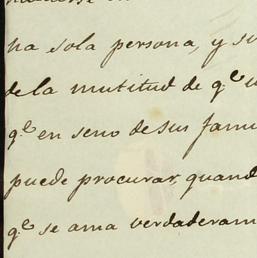 na sola persona, y su
de la mutitud de q.e u
q.e en seno de sus fami
puede procurar, quand
q.e se ama verdaderam